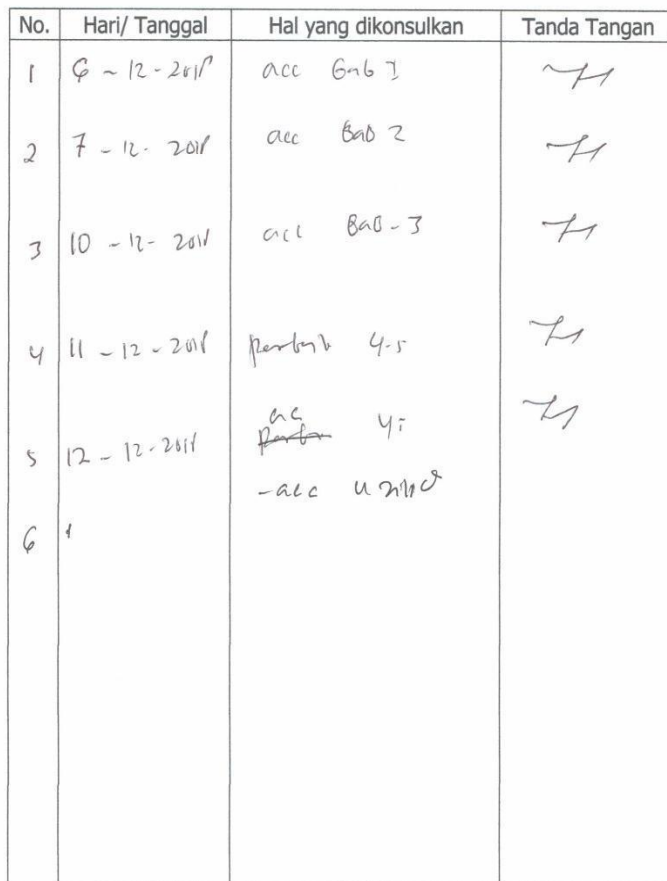 No. Hari/ Tanggal Hal yang dikonsulkan Tanda Tangan
1 6 - 12 - 2018 acc Bab 1
2 7 - 12 - 2018 acc BaB 2
3 10 - 12 - 2018 acc BaB - 3
4 11 - 12 - 2018 4-5
5 12 - 12 - 2018 acc
- acc
6